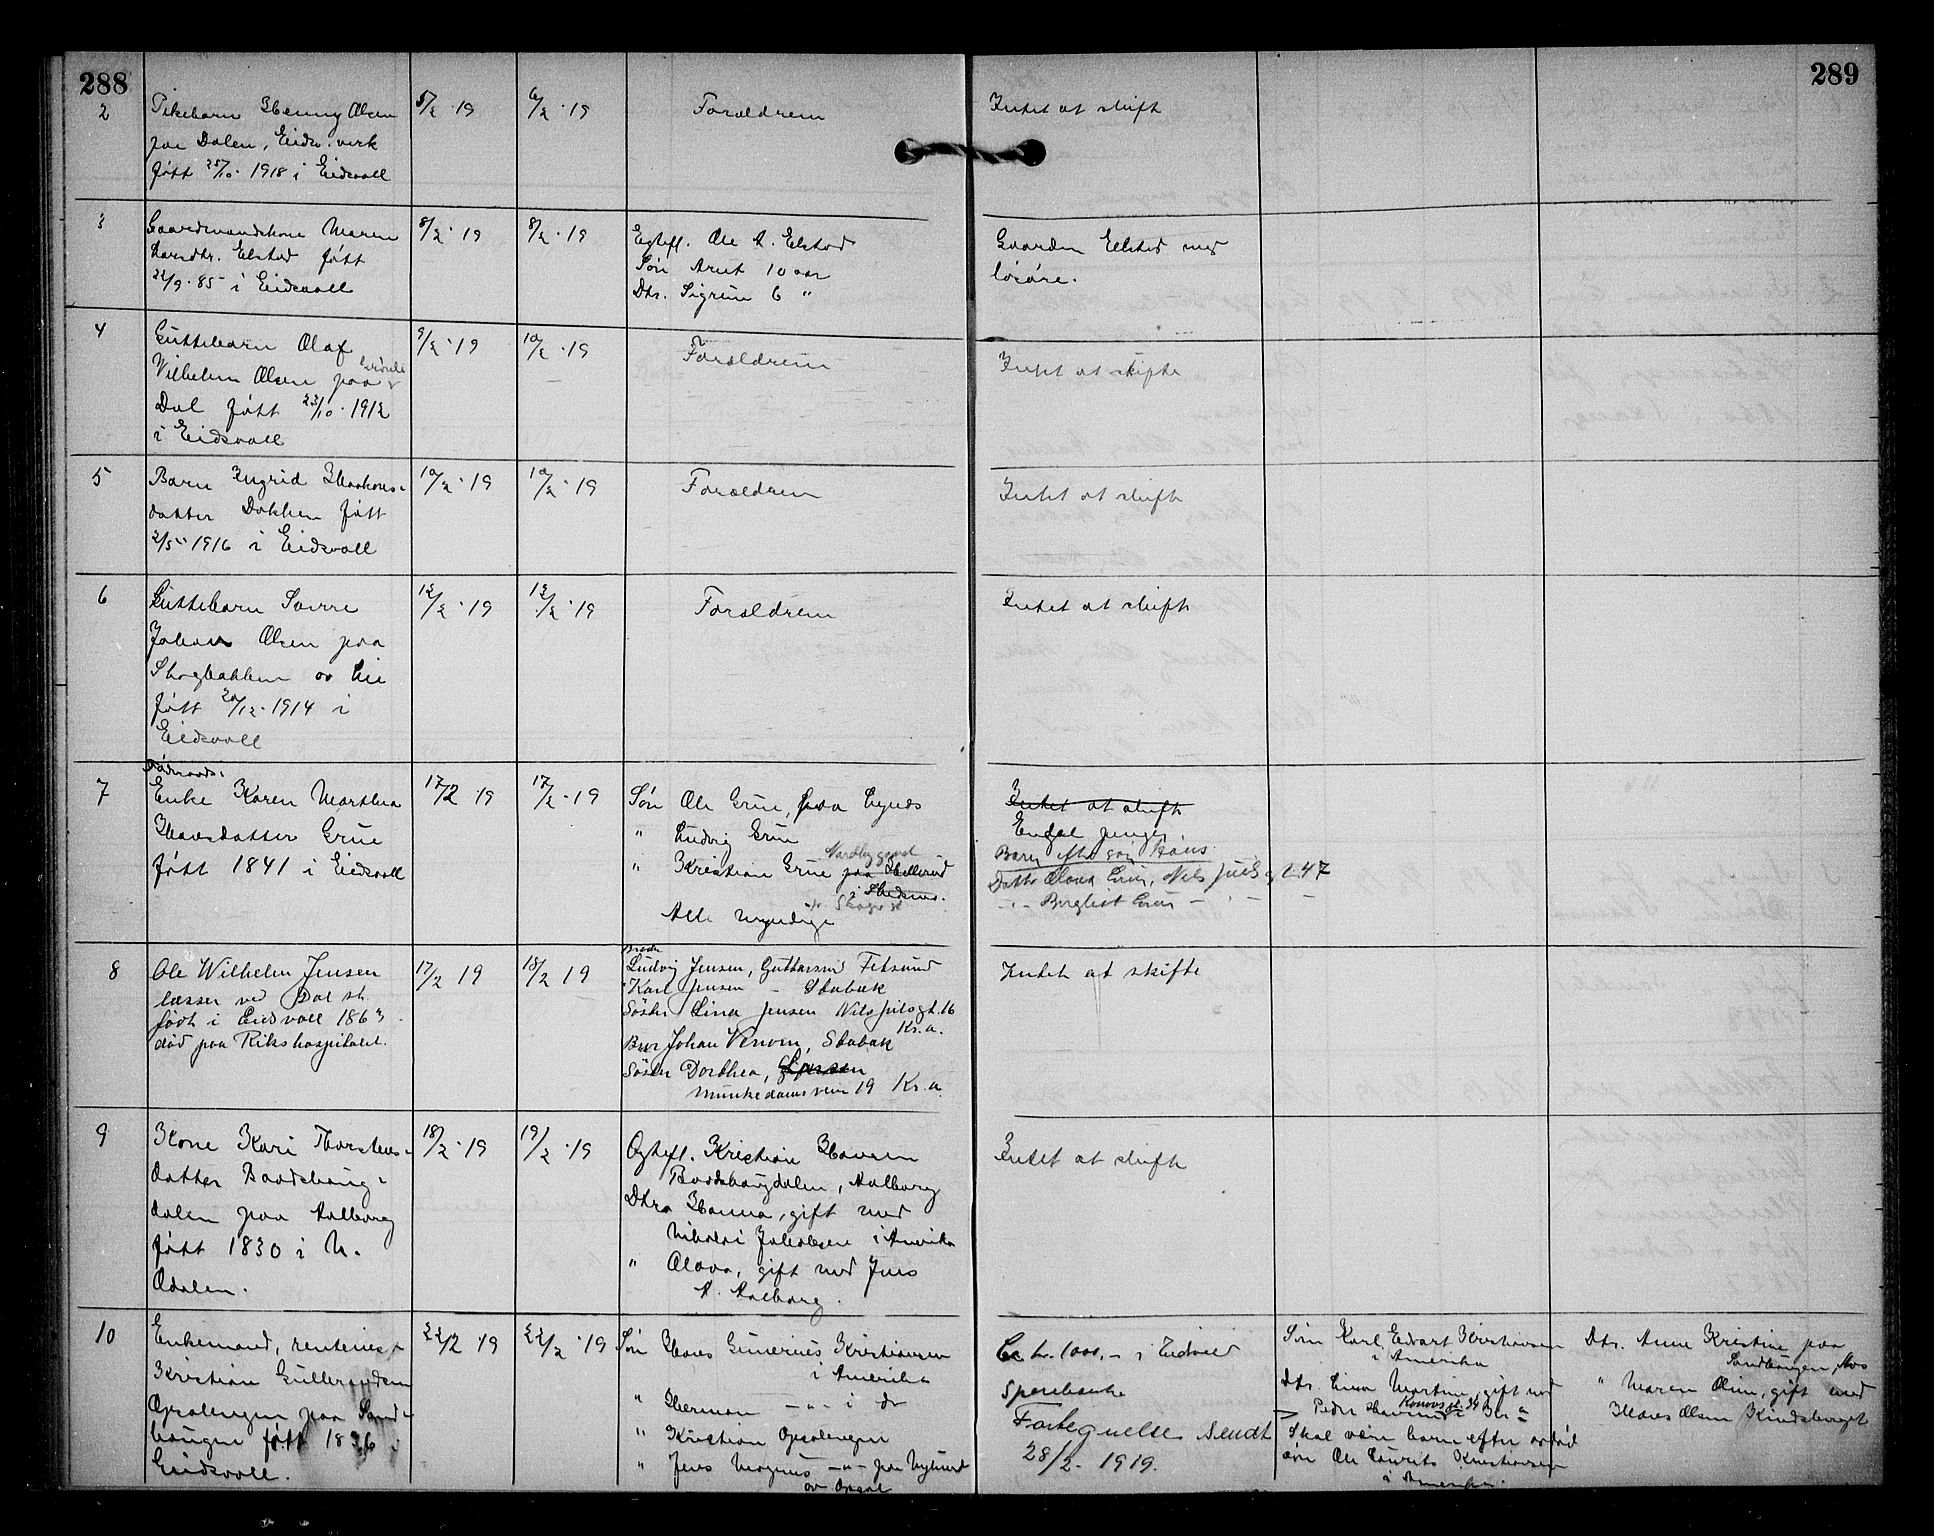 288
289
2
Pikebarn Henny Olsen
paa Dalen, Eidsv. verk
født 25/10. 1918 i Eidsvoll
5/2. 19
6/2. 19
Forældrene
Intet at skifte
3
Gaardmandskone Maren
Larsdtr. Elstad født
22/9. 85 i Eidsvoll
8/2. 19
8/2. 19
Egtefl. Ole A. Elstad
Søn Arnt 10 aar
Dtr. Sigrun 6 "
Gaarden Elstad med
løsøre.
4
Guttebarn Olaf
Wilhelm Olsen paa
Dal født 23/10. 1912
i Eidsvoll
9/2. 19
10/2. 19
Forældrene
Intet at skifte
5
Barn Ingrid Haakons-
datter Dokken født
2/5 1916 i Eidsvoll
10/2. 19
10/2. 19
Forældrene
Intet at skifte
6
Guttebarn Sverre
Johan Olsen paa
Skogbakken av Lie
født 20/12. 1914 i
Eidsvoll
12/2. 19
12/2. 19
Forældrene
Intet at skifte
7
Føderaads-
Enke Karen Marthea
Hansdatter Grue
født 1841 i Eidsvoll
17/2 19
17/2. 19
Søn Ole Grue, paa Lynes
" Ludvig Grue
" Kristian Grue paa Hellerud
Nordbygaard
i Skedsmo.
Alle myndige
Intet at skifte
Endel penger.
Barn efter søn Hans:
Datter Olava Grue, Nils Juels gt 47
— " — Borglist Grue — " — —
8
Ole Wilhelm Jensen
læsser ved Dal st.
født i Eidsvoll 1863
død paa Rikshospitalet.
17/2 19
18/2 19
Broder
Ludvig Jensen, Guttersrud Fetsund
" Karl Jensen — Stabæk
Søster Lina Jensen Nils Juels gt. 16
Kr.a.
Bror Johan Jensen, Stabæk
Søster Dorthea, Larsen
Munkedamsveien 19 Kr.a.
Intet at skifte
9
Kone Kari Thorstens-
datter Baardshaug-
dalen paa Aalborg
født 1830 i N.
Odalen.
18/2. 19
19/2. 19
Egtefl. Kristian Hansen
Baardshaugdalen, Aalborg
Dtre Hanna, gift med
Nikolai Jakobsen i Amerika
" Olava, gift med Jens
A. Aalborg.
Intet at skifte
10
Enkemand, rentenist
Kristian Gulbrandsen
Opsalengen paa Sand-
haugen født 1836 i
Eidsvoll.
22/2 19
22/2. 19
Søn Hans Gunerius Kristiansen
i Amerika
" Herman — " — i do
" Kristian Opsalengen
" Jens Magnus — " — paa Nylund
av Opsal
Ca kr. 1000,- i Eidsvold
Sparebank
Fortegnelse sendt
28/2. 1919.
Søn Karl Edvart Kristiansen
i Amerika
Dtr. Lina Martine, gift med
Peder i Kr.a
Skal være barn efter avdød
søn Ole Laurits Kristiansen
i Amerika.
Dtr. Anne Kristine paa
Sandhaugen,
" Maren Oline, gift med
Hans Olsen Kindsberget